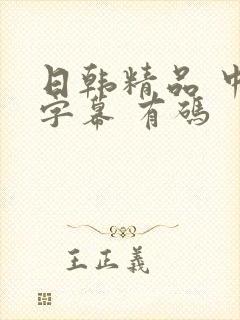 日韩精品 中
字幕 有碼
王正義